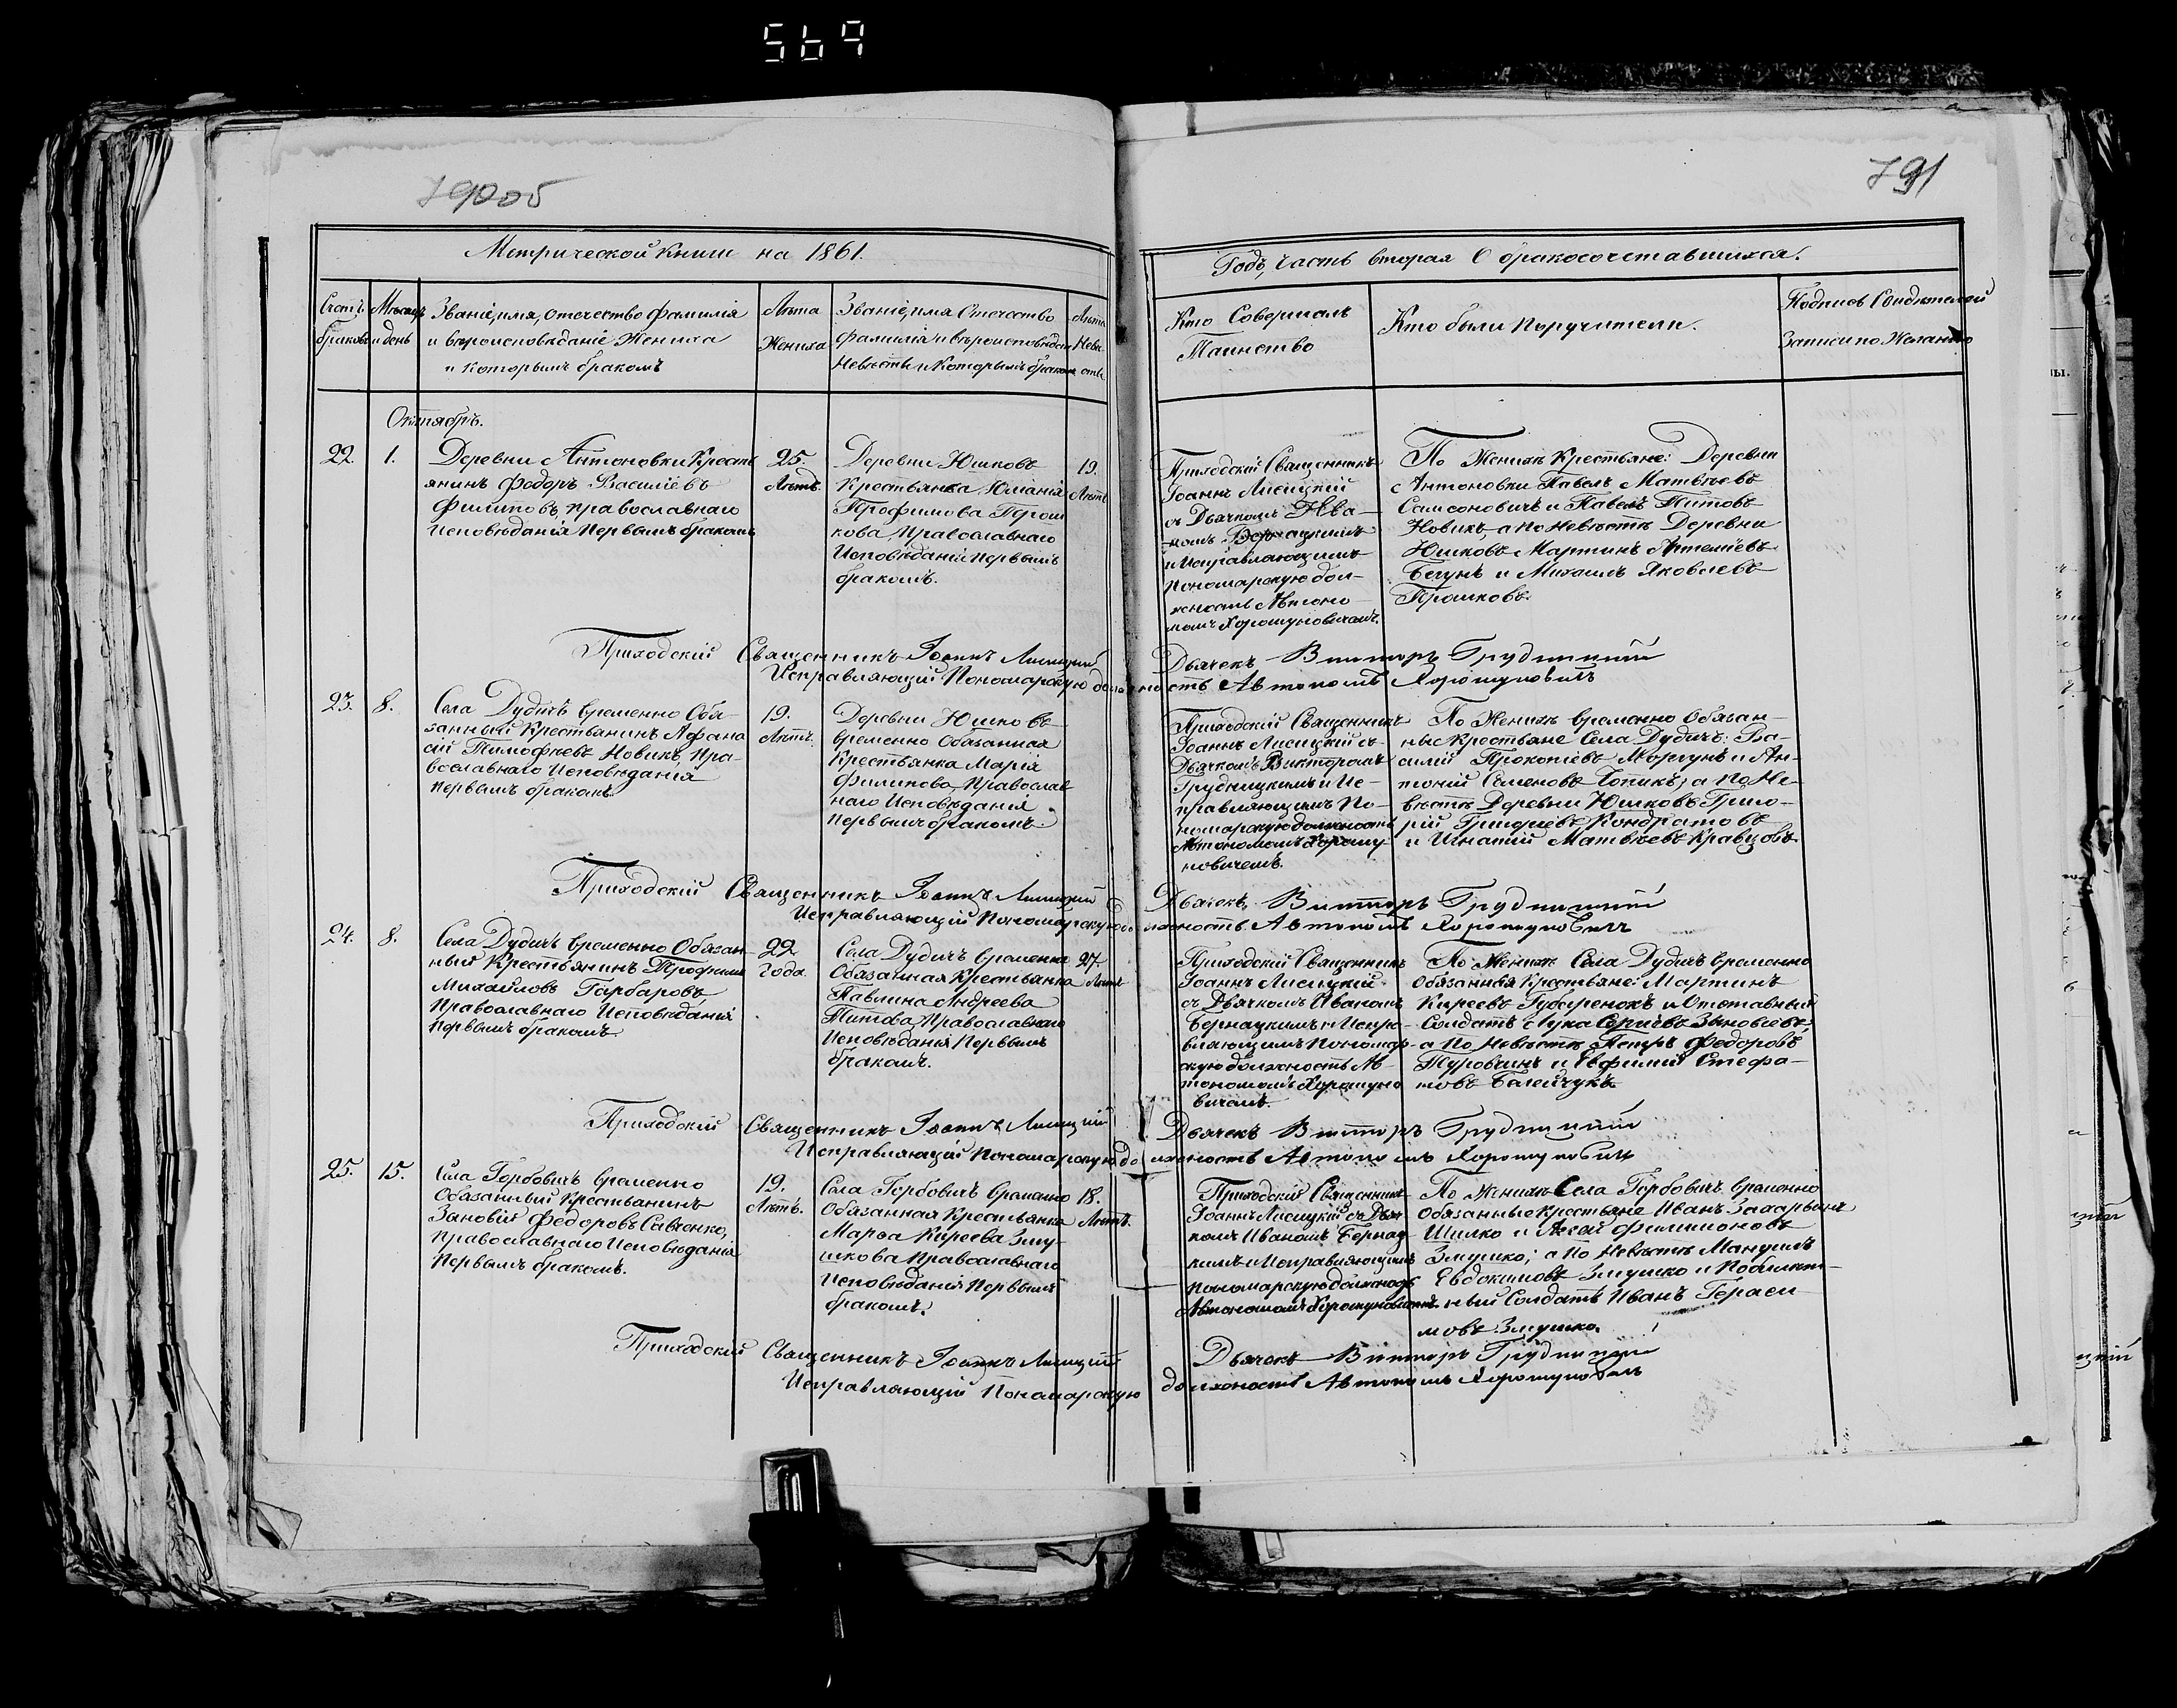 569
790об
791
Метрической книги на 1861.
Годъ, часть вторая О бракосочетавшихся.
Счетъ браковъ
Мѣсяцъ и день
Званіе, имя, отечество фамилія
и вѣроисповѣданіе Жениха
и которымъ бракомъ
Лѣта
Жениха
Званіе, имя Отечество
фамилія и вѣроисповѣдан
Невѣсты и Которымъ бракомъ
Лѣта
Неве-
сты
Кто Совершалъ
Таинство
Кто были Поручители.
Подпись Свидѣтелей
Записи по Желанію
Октябрь.
22. 1.
Деревни Антоновки Кресть
янинъ Федоръ Василіевъ
Филиповъ, православнаго
исповѣданія Первымъ бракомъ
25
Лѣтъ.
Деревни Юшковъ
Крестьянка Юліанія
Трофимова Прош
кова, Православнаго
Исповѣданія первымъ
бракомъ.
19.
Лѣтъ
Приходскій Священникъ
Іоаннъ Лисицкій
съ Дьячкомъ Ива-
номъ Бернацкимъ
и Исправляющимъ
Пономарскую дол-
жность Автоно-
момъ Хорошуновичемъ.
По Женихѣ Крестьяне: Деревни
Антоновки Павелъ Матвѣевъ
Самсоновичъ и Павелъ Титовъ
Новикъ, а по Невѣстѣ Деревни
Юшковъ Мартинъ Артеміевъ
Бегунъ и Михаилъ Яковлевъ
Прошковъ.
Приходскій Священникъ Іоаннъ Лисицкій Дьячекъ Викторъ Грудницкій
Исправляющій Пономарскую должность Автономъ Хорошуновичъ
23. 8.
Села Дудичъ временно Обя-
занный Крестьянинъ Афана
сій Тимофеевъ Новикъ, Пра-
вославнаго Исповѣданія
первымъ бракомъ.
19.
Лѣтъ.
Деревни Юшковъ
временно Обязанная
Крестьянка Марія
Филипова, Православ
наго Исповѣданія
первымъ бракомъ.
Приходскій Священникъ
Іоаннъ Лисицкій съ
Дьячкомъ Викторомъ
Грудницкимъ и Ис-
правляющимъ По-
номарскую должность
Автономомъ Хорошу-
новичемъ.
По Женихѣ временно Обязан-
ные Крестьяне Села Дудичъ: Ва-
силій Прокопіевъ Моргунъ и Ан-
тоній Семеновъ Чопикъ; а по Не-
вѣстѣ Деревни Юшковъ Григо-
рій Григоріевъ Кондратовъ
и Игнатій Матвѣевъ Кравцовъ.
Приходскій Священникъ Іоаннъ Лисицкій Дьячекъ Викторъ Грудницкій
Исправляющій Пономарскую должность Автономъ Хорошуновичъ
24. 8.
Села Дудичъ временно Обязан
ный Крестьянинъ Трофимъ
Михайловъ Гарбаровъ
Православнаго Исповѣданія
первымъ бракомъ.
22
Года.
Села Дудичъ временно
Обязанная Крестьянка
Павлина Андреева
Титова, Православнаго
Исповѣданія Первымъ
бракомъ.
27
Лѣтъ
Приходскій Священникъ
Іоаннъ Лисицкій
съ Дьячкомъ Иваномъ
Бернацкимъ и Испра-
вляющимъ Пономар-
скую должность Ав-
тономомъ Хорошуно
вичемъ.
По Женихѣ Села Дудичъ временно
обязанные Крестьяне: Мартинъ
Киреевъ Губаренокъ и Отставный
Солдатъ Лука Сергіевъ Зиновьевъ;
а по Невѣстѣ Петръ Федоровъ
Туровчинъ и Евфимій Стефа-
новъ Балейчукъ.
Приходскій Священникъ Іоаннъ Лисицкій Дьячекъ Викторъ Грудницкій
Исправляющій Пономарскую должность Автономъ Хорошуновичъ
25. 15.
Села Горбовичъ временно
Обязанный Крестьянинъ
Зановій Федоровъ Савченко,
православнаго Исповѣданія
Первымъ бракомъ.
19.
Лѣтъ.
Села Горбовичъ временно
Обязанная Крестьянка
Марѳа Киреева Зму-
шкова Православнаго
Исповѣданія Первымъ
бракомъ.
18.
Лѣтъ.
Приходскій Священникъ
Іоаннъ Лисицкій съ Дья
комъ Иваномъ Бернац-
кимъ и Исправляющимъ
пономарскую должность
Автономомъ Хорошуновичемъ.
По Женихѣ Села Горбовичъ временно
обязанные Крестьяне Иванъ Захарьинъ
Шилко и Агей Филимоновъ
Змушко; а по Невѣстѣ Мануилъ
Евдокимовъ Змушко и
ный Солдатъ Иванъ Гераси-
мовъ Змушко.
Приходскій Священникъ Іоаннъ Лисицкій Дьячекъ Викторъ Грудницкій
Исправляющій Пономарскую должность Автономъ Хорошуновичъ